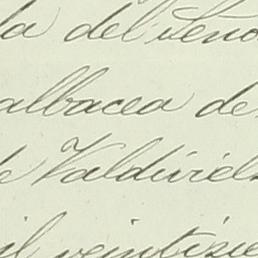 la del Seño
albacea de
de Valdiviels
il veintisie